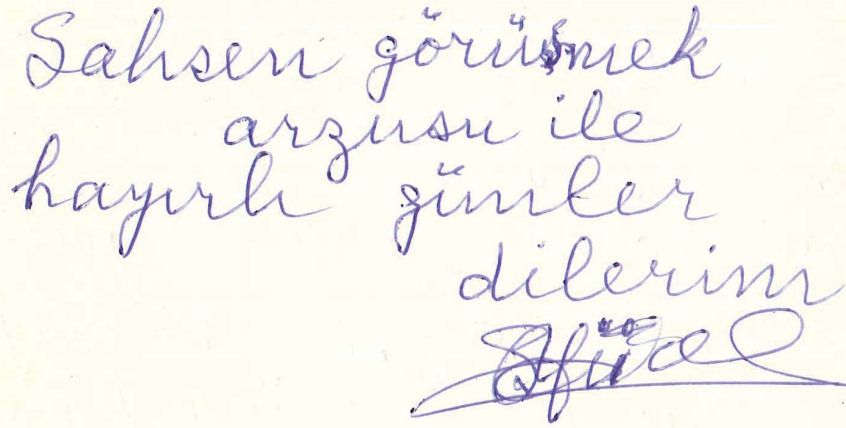 Şahsen görüşmek
arzusu ile
hayırlı günler
dilerim